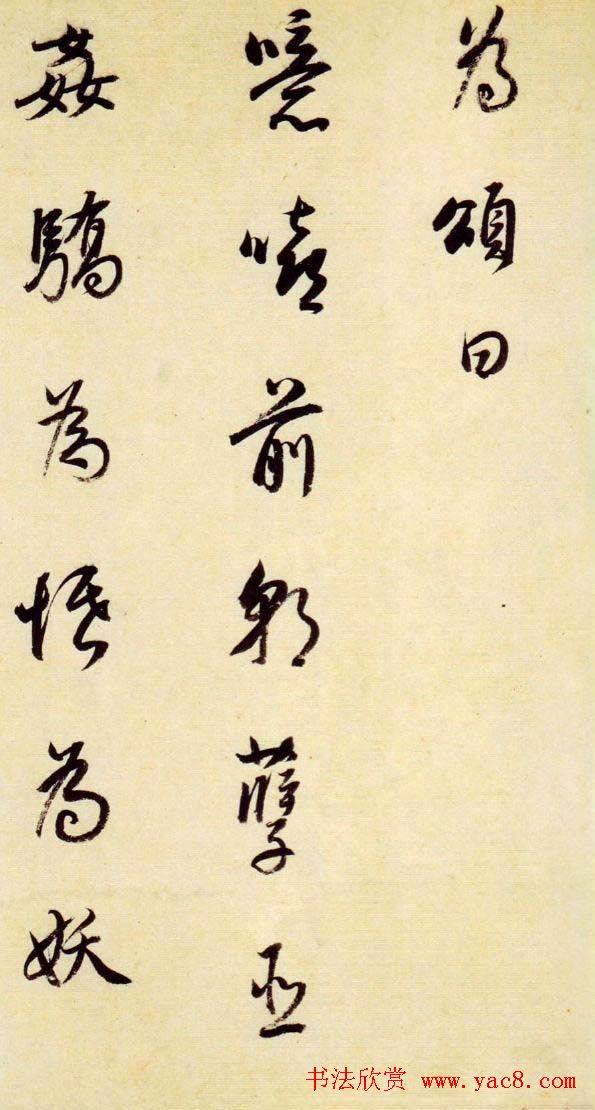 為頌曰
噫嘻前朝孽臣
姦驕為惛為妖
书法欣赏 www.yac8.com